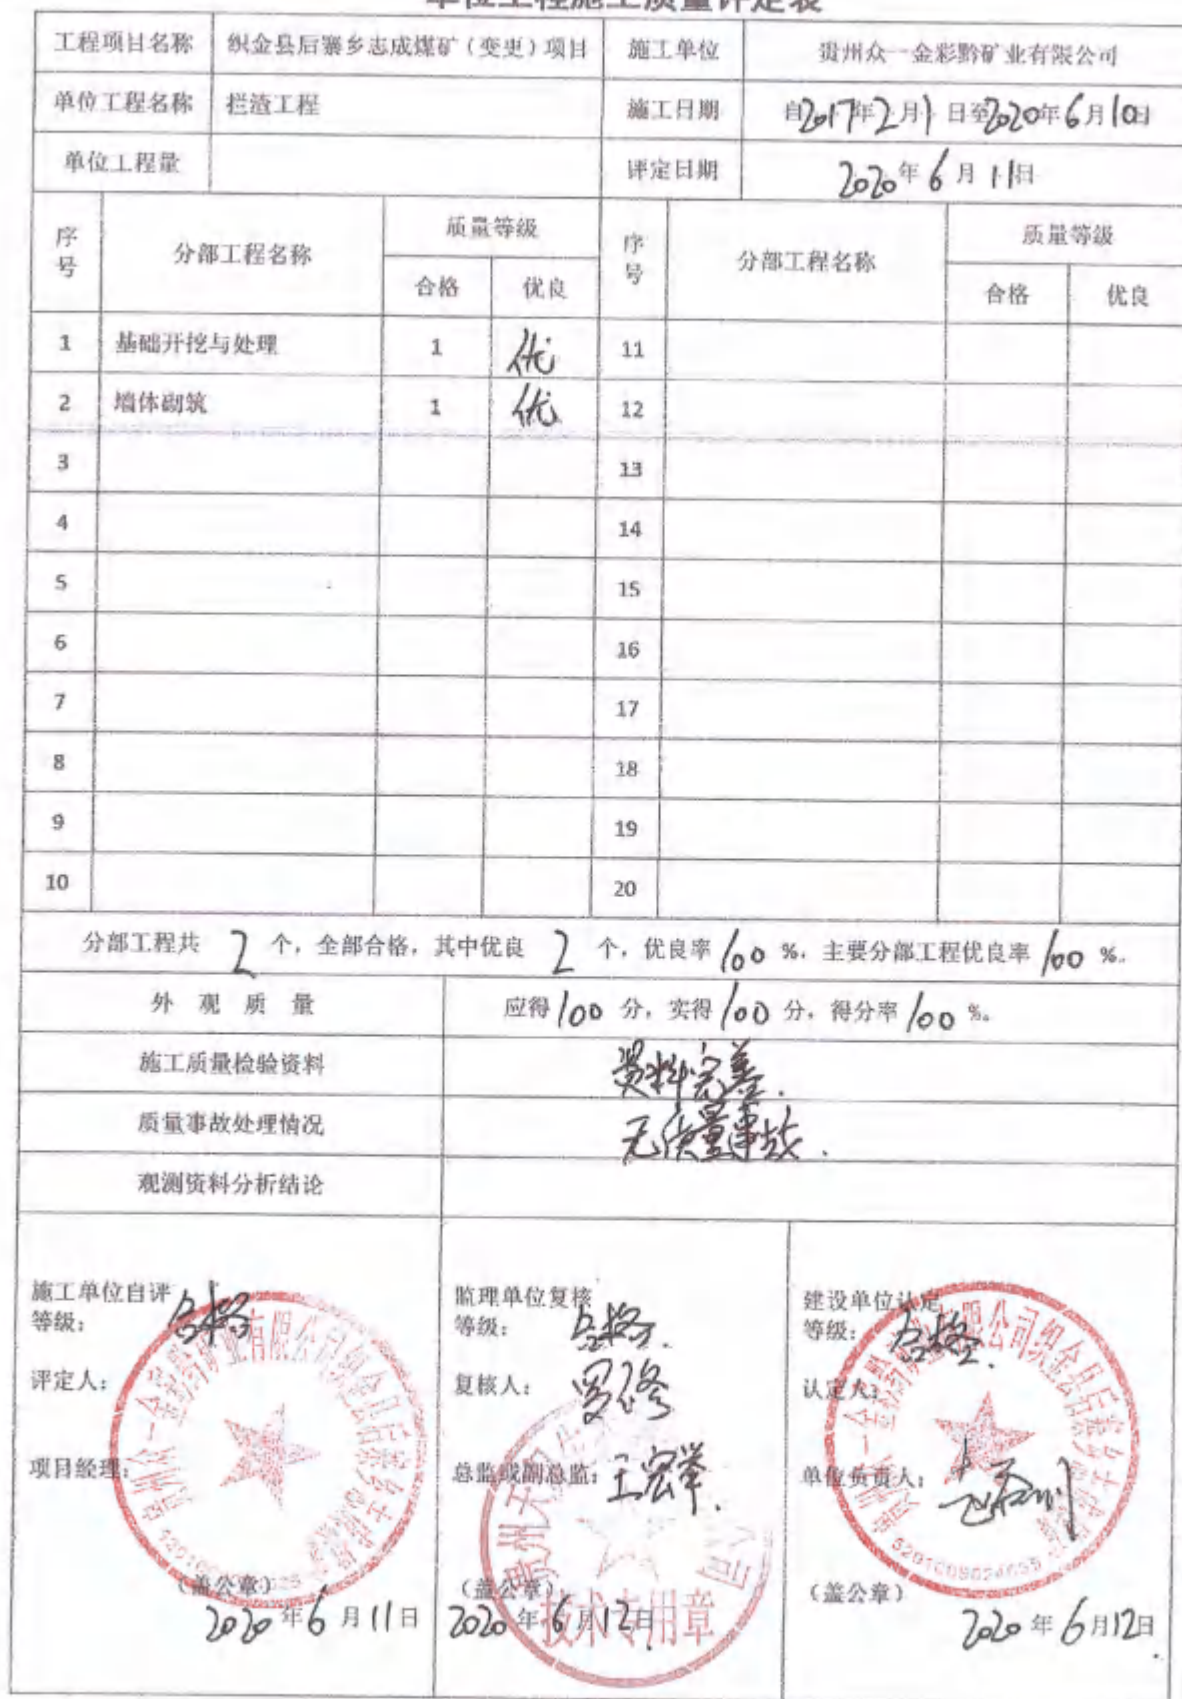 单位工程施工质量评定表
工程项目名称 织金县后寨乡志成煤矿（变更）项目 施工单位 贵州众一金彩黔矿业有限公司
单位工程名称 拦渣工程 施工日期 自2017年2月1日至2020年6月10日
单位工程量 评定日期 2020年6月11日
序号 分部工程名称 质量等级 序号 分部工程名称 质量等级
合格 优良 合格 优良
1 基础开挖与处理 1 优 11
2 墙体砌筑 1 优 12
3 13
4 14
5 15
6 16
7 17
8 18
9 19
10 20
分部工程共 2 个，全部合格，其中优良 2 个，优良率 100 %，主要分部工程优良率 100 %。
外观质量 应得 100 分，实得 100 分，得分率 100 %。
施工质量检验资料 资料完善.
质量事故处理情况 无质量事故.
观测资料分析结论
施工单位自评等级： 合格
评定人：
项目经理：
（盖公章）
2020年6月11日
监理单位复核等级： 合格.
复核人：
总监或副总监： 王宏举.
（盖公章）
技术专用章
2020年6月12日
建设单位认定等级： 合格.
认定人：
单位负责人：
（盖公章）
2020年6月12日.